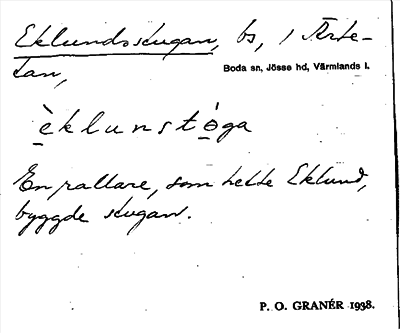 Eklundsstugan, bs, i Ärte-
tan,
Boda sn, Jösse hd, Värmlands l.
èklunstóga
En rallare, som hette Eklund,
byggde stugan.
P. O. GRANÉR 1938.